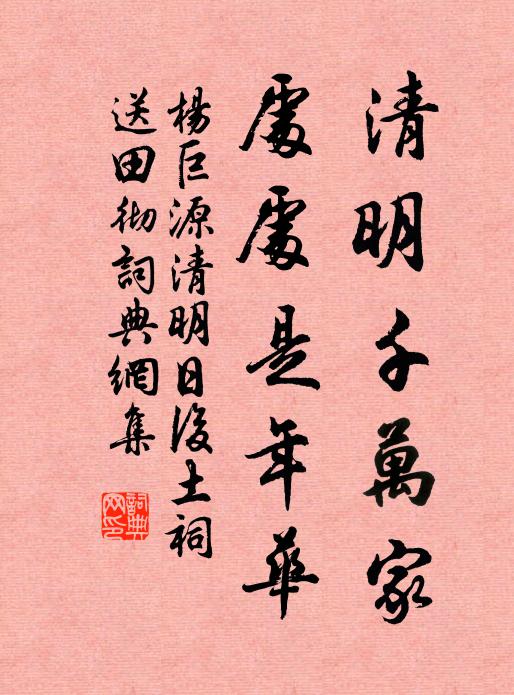 清明千萬家
處處是年華
楊巨源清明日後土祠
送田彻詞典網集
詞典
网印